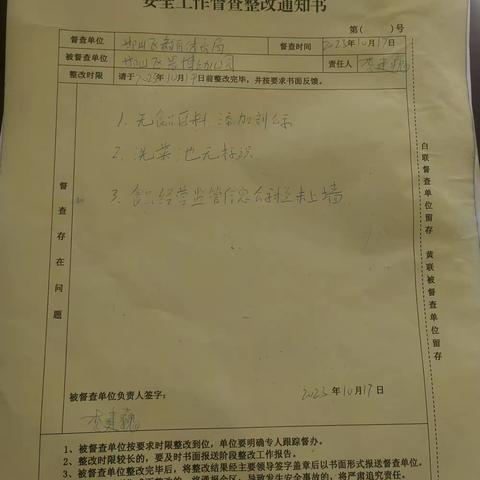 安全工作督查整改通知书
第( )号
督查单位 邯山区教育体育局 督查时间 2023年10月17日
被督查单位 责任人
整改时限 请于2023年10月17日前整改完毕,并按要求书面反馈。
督查存在问题
1. 无食品原料 添加剂标
2. 洗菜池无标识
3. 食品经营监管信息公示栏未上墙
被督查单位负责人签字:
2023年10月17日
1、被督查单位按要求时限整改到位,单位要明确专人跟踪督办。
2、整改时限较长的,要及时书面报送阶段整改工作报告。
3、被督查单位整改完毕后,将整改结果经主要领导签字盖章后以书面形式报送督查单位。
将通报全区;导致发生安全事故的,将严肃追究责任。
白联督查单位留存 黄联被督查单位留存